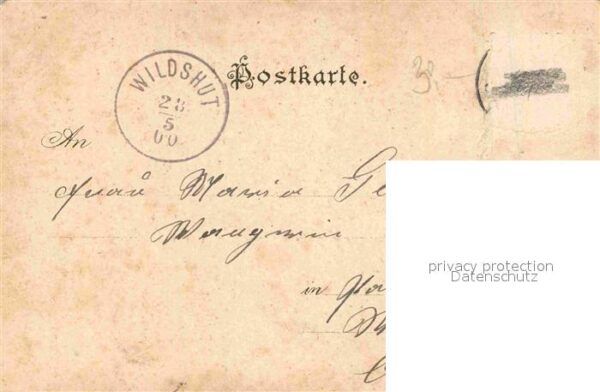 WILDSHUT
28
5
00
Postkarte.
3.-
An
Frau Maria Ge
in
privacy protection
Datenschutz